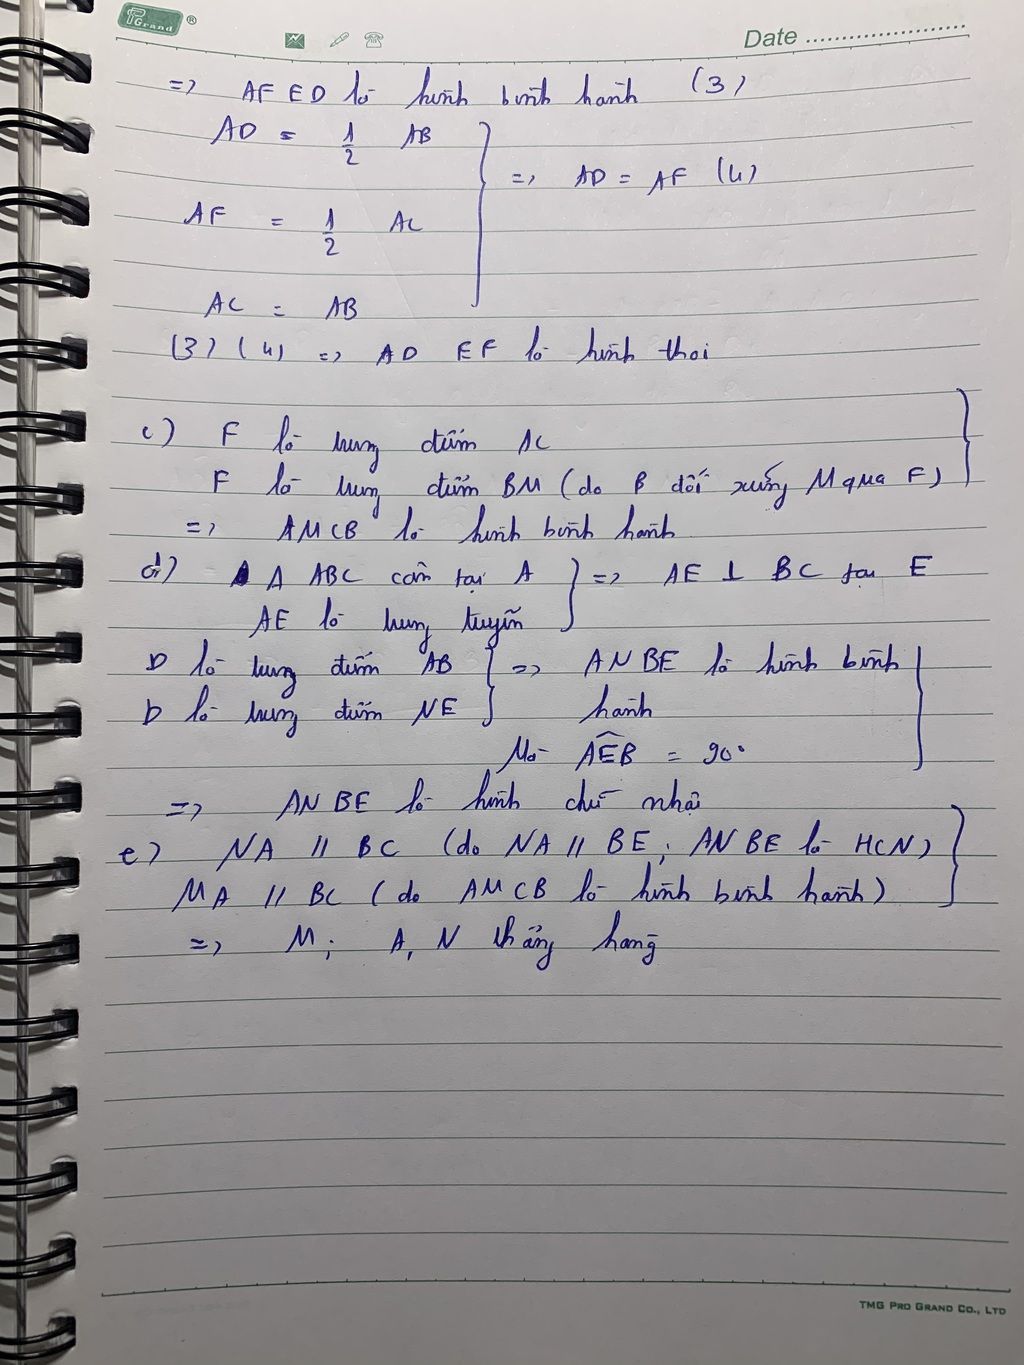 PGrand ®
Date
=> AFED là hình bình hành (3)
AD = 1/2 AB
=> AD = AF (4)
AF = 1/2 AC
AC = AB
(3) (4) => ADEF là hình thoi
c) F là trung điểm AC
F là trung điểm BM (do B đối xứng M qua F)
=> AMCB là hình bình hành
d) Δ ABC cân tại A => AE ⊥ BC tại E
AE là trung tuyến
D là trung điểm AB => ANBE là hình bình
D là trung điểm NE hành
Mà AEB = 90°
=> ANBE là hình chữ nhật
e) NA // BC (do NA // BE; ANBE là HCN)
MA // BC (do AMCB là hình bình hành)
=> M; A, N thẳng hàng
TMG PRO GRAND CO., LTD